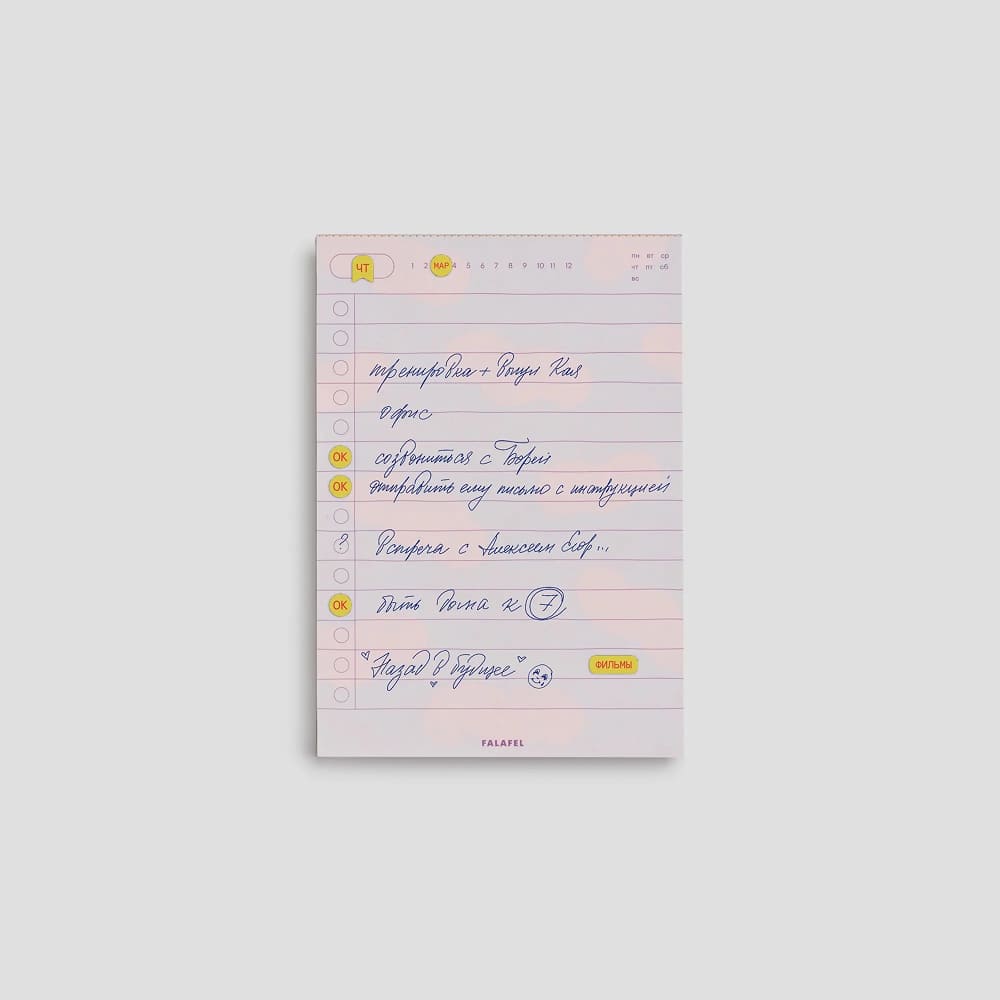 ЧТ 1 2 МАР 4 5 6 7 8 9 10 11 12
пн вт ср
чт пт сб
вс
тренировка + выгул Кая
офис
ОК созвониться с Борей
ОК отправить ему письмо с инструкцией
? Встреча с Алексеем Егор...
ОК быть дома к 7
"Назад в будущее" ФИЛЬМЫ
FALAFEL